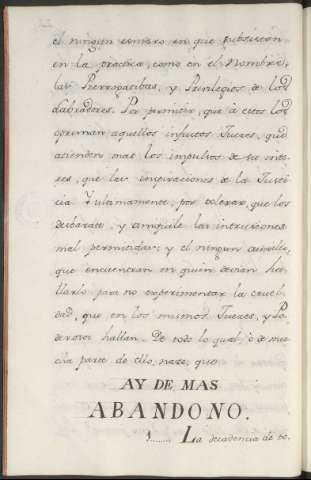 el ningun esmero en que subsistan
en la practica, como en el Nombre,
las Prerrogatibas, y Privilegios de los
Labradores. Por permitir, que à estos los
opriman aquellos injustos Jueces, que
atienden mas los impulsos de su inte-
res, que las inspiraciones de la Justi-
cia Y ultimamente, por tolerar, que los
desbarate, y aniquile las intrusiones
mal permitidas; y el ningun
que encuentran en quien devian ha-
llarlo para no experimentar la cruel-
dad, que en los mismos Jueces, y Po-
derosos hallan. De todo lo qual, ò de mu-
cha parte de ello, nace, que
AY DE MAS
ABANDONO.
1....... La decadencia de to-